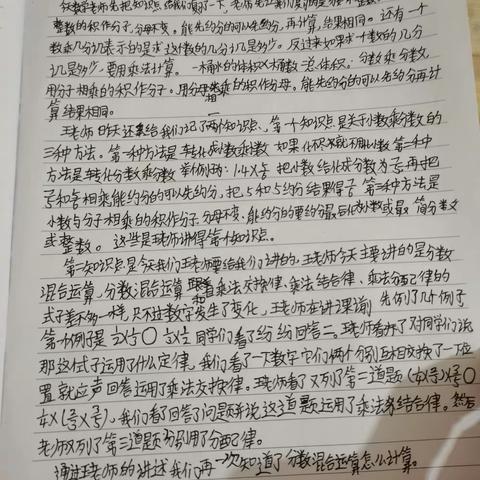 数学老师先把知识点给我们复习了一下,老师先让我们复习的是分数
整数的积作分子,分母不变。能先约分的可以先约分,再计算,结果相同。还有一个
数乘几分几表示的是求这个数的几分几是多少。反过来如果求一个数的几分
几是多少,要用乘法计算。一桶水的体积×桶数=总体积。分数乘分数
用分子相乘的积作分子。用分母相乘的积作分母。能先约分的可以先约分再计
算结果相同。
王老师昨天还给我们记了两个知识点、第一个知识点是关于小数乘分数的
三种方法。第一种方法是转化成小数乘小数 如果化不成就不用小数 第二种
方法是转化分数乘分数 举个例子:1.4× 把小数给化成分数为 再把
和 相乘能约分的可以先约分,把5和5约分结果得 第三种方法是
小数与分子相乘的积作分子 分母不变:能约分的要约分最后化为小数或最简分数
或整数。这些是王老师讲得第一个知识点。
第二知识点是今天我们王老师要给我们讲的,王老师今天主要讲的是分数
混合运算,分数混合运算跟着和乘法交换律、乘法结合律、乘法分配律的
式子差不多一样,只不过数字发生了变化,王老师在讲课前 先列了几个例子
第一个例子是 ○ 同学们看了纷纷回答=。王老师看好了对同学们说
那这个式子运用了什么定律,我们看了一下数字它们两个分别互相交换了一下位
置就应声回答运用了乘法交换律。王老师看了又列了第二道题 ○
,我们看了回答了问题并说这道题运用了乘法结合律。然后
老师又列了第三道题 分别用了分配律。
通过王老师的讲述我们再一次知道了分数混合运算怎么计算。